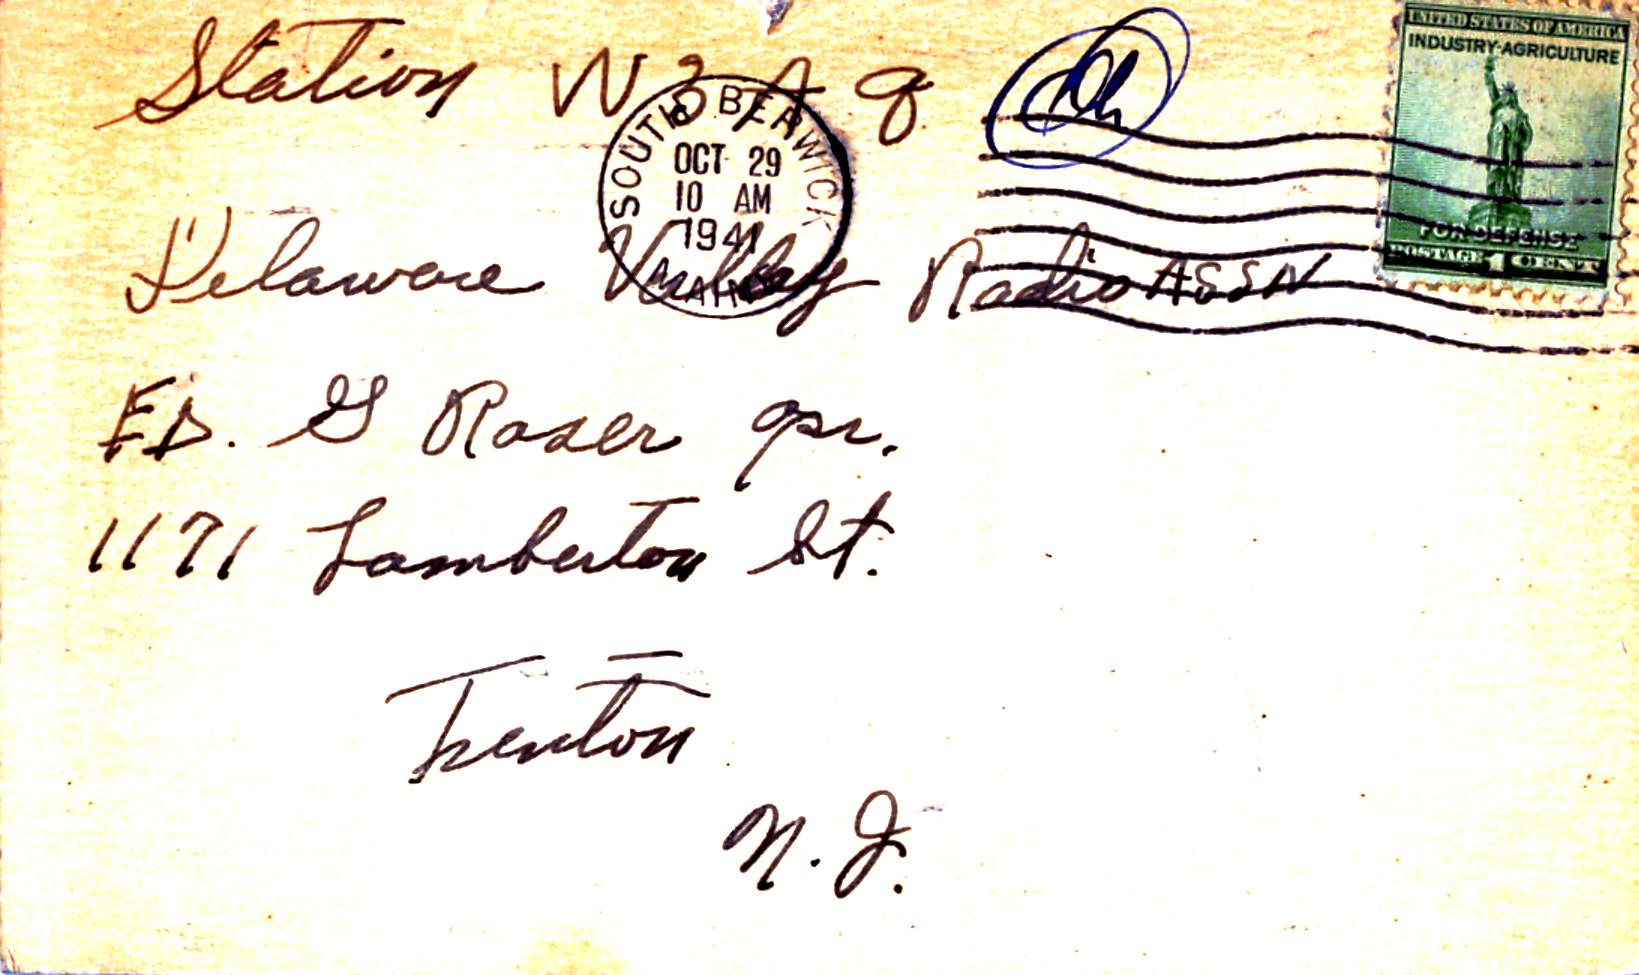 UNITED STATES OF AMERICA
INDUSTRY·AGRICULTURE
FOR DEFENSE
POSTAGE 1 CENTS
Station W 3 A q
SOUTH BERWICK
OCT 29
10 AM
1941
MAINE
Delaware Valley Radio ASSN
ED. G Raser opr.
1171 Lamberton St.
Trenton
N. J.